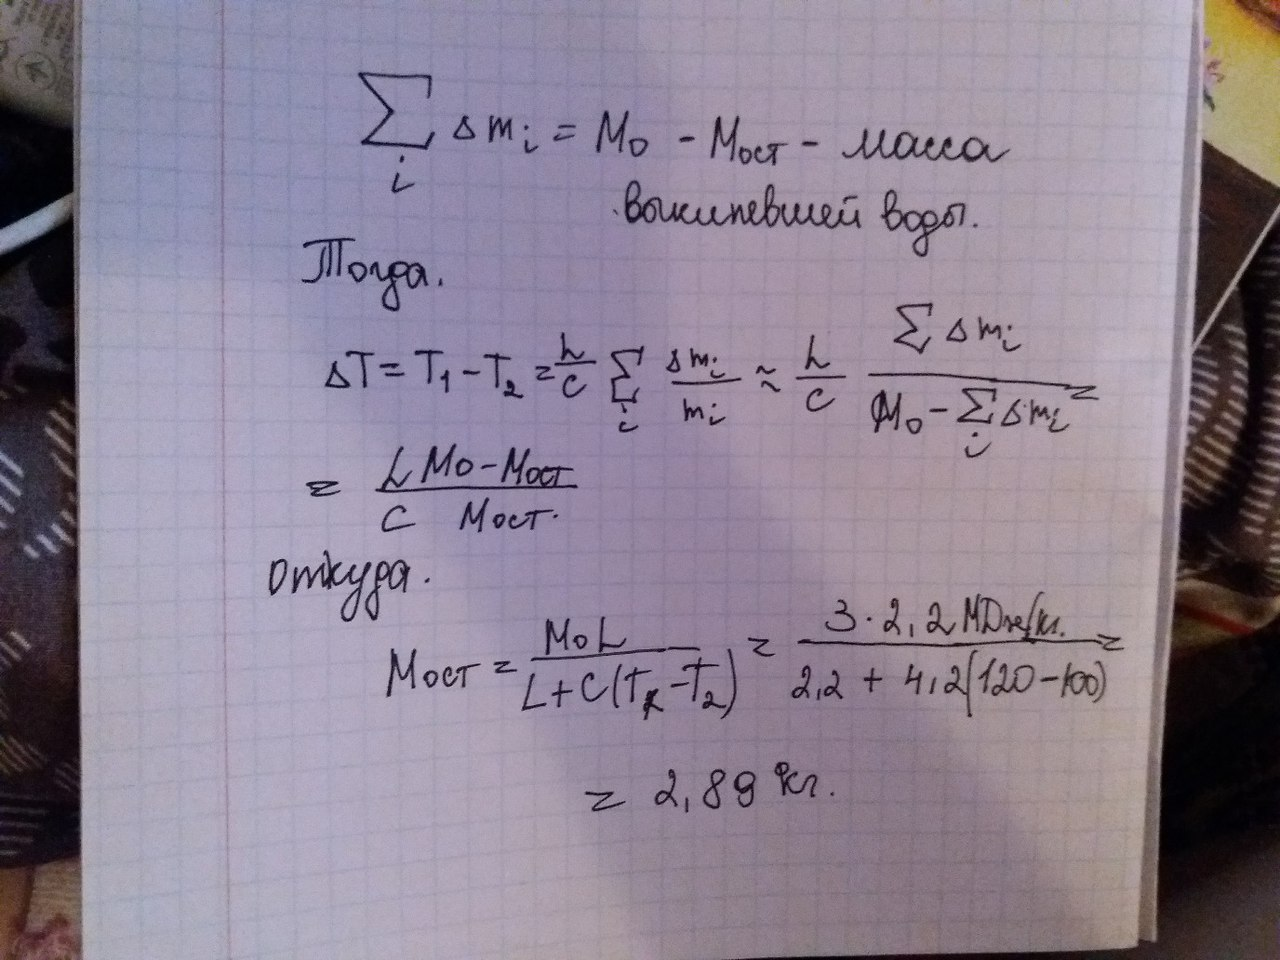 ∑ Δmᵢ = M₀ - Mост - масса
i
выкипевшей воды.
Тогда.
ΔT = T₁ - T₂ = L/C ∑ᵢ Δmᵢ/mᵢ ≈ L/C ∑Δmᵢ/(M₀ - ∑ᵢ Δmᵢ) =
= L M₀ - Mост / C Mост.
откуда.
Mост = M₀L / L + C(Tк - T₂) = 3 · 2,2 МДж/кг. / 2,2 + 4,2(120 - 100) =
= 2,89 кг.